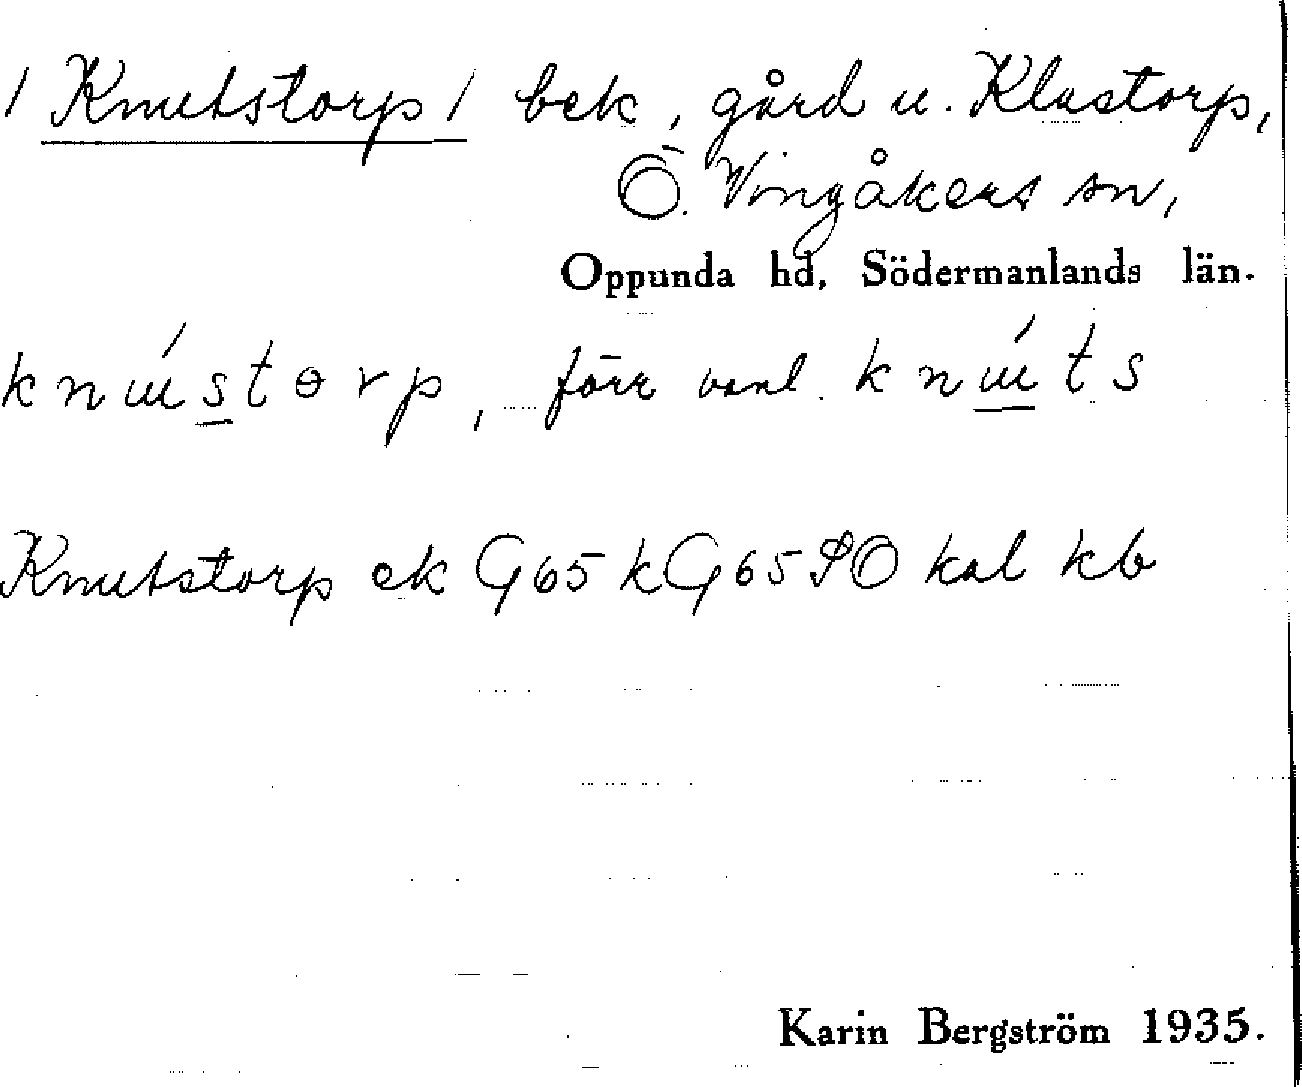 / Knutstorp / bek, gård u. Klastorp,
Ö. Vingåkers sn,
Oppunda hd, Södermanlands län.
knústorp, förr vanl. knúts
Knutstorp ek G65 kG65 SO kal kb
Karin Bergström 1935.